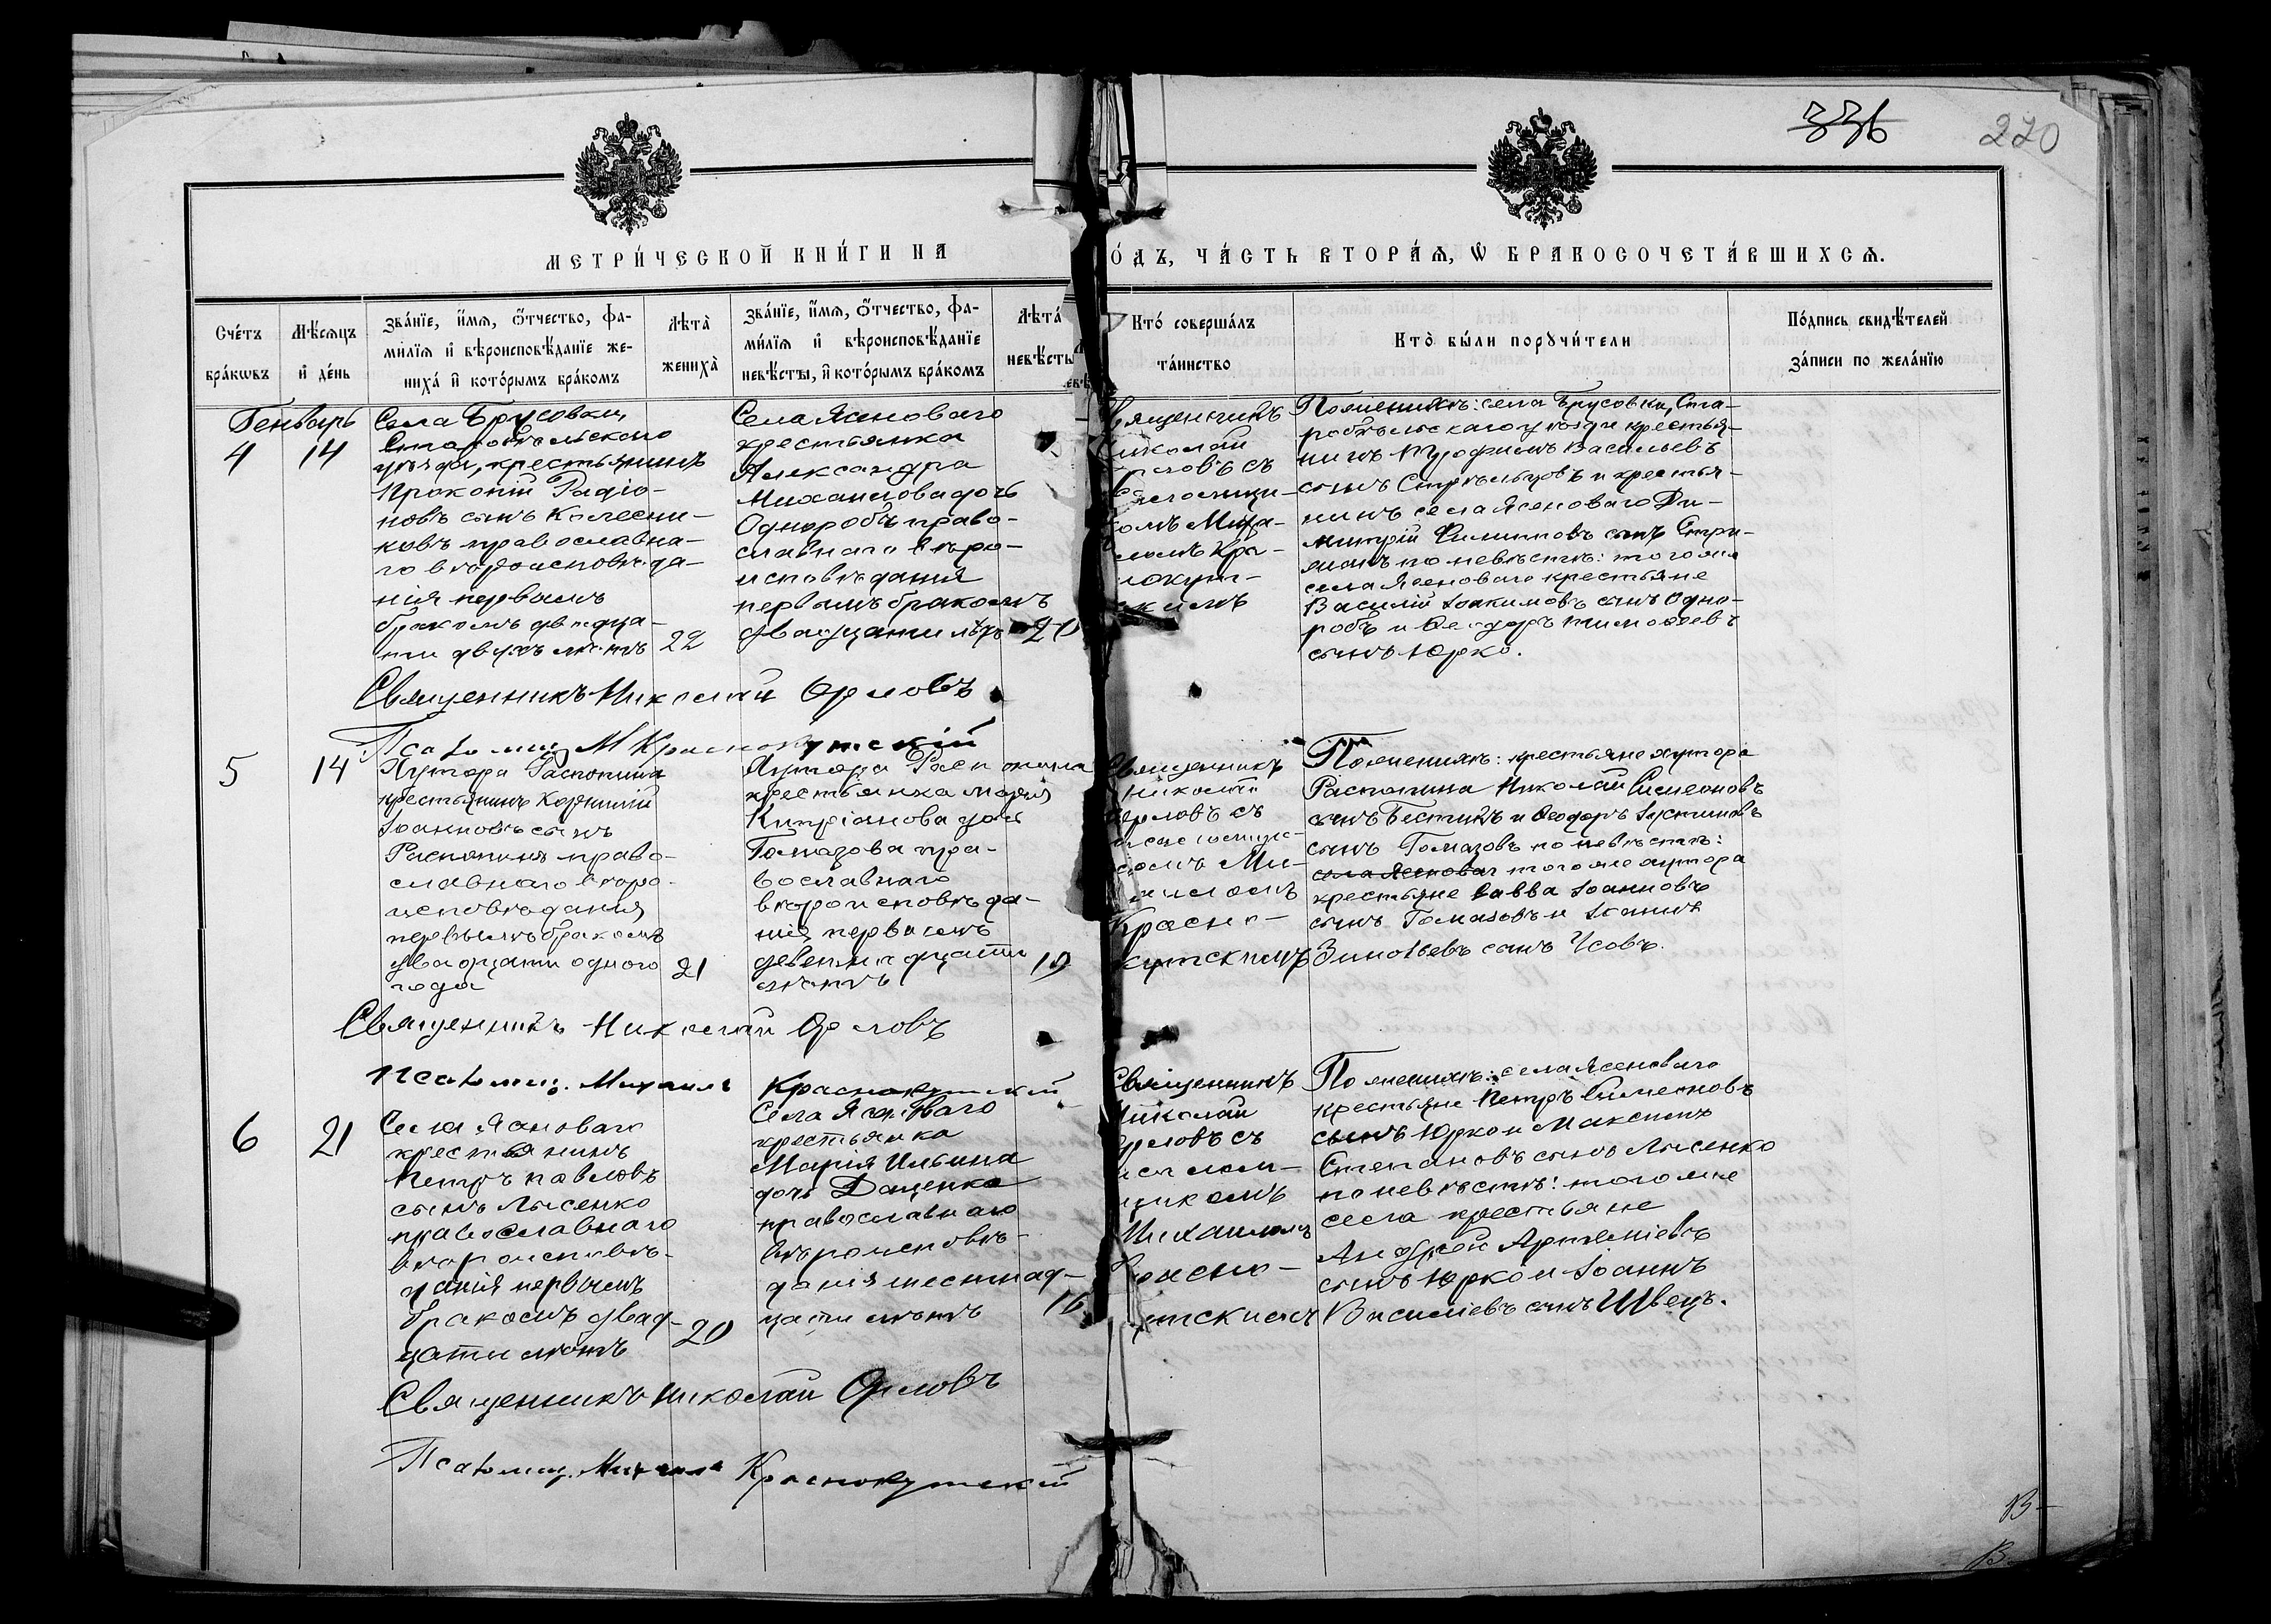 336
220
МЕТРИ́ЧЕСКОЙ КНИ́ГИ НА
О́ДЪ, ЧА́СТЬ ВТОРА́Ѧ, Ѡ БРАКОСОЧЕТА́ВШИХСѦ.
Сче́тъ бра́кѡвъ
Мѣ́сѧцъ и҆ де́нь
Зва́нїе, и҆́мѧ, ѻ҆́тчество, фа-
ми́лїѧ и҆ вѣроисповѣ́данїе же-
ниха̀ и҆ кото́рымъ бра́комъ
Лѣта̀ жениха̀
Зва́нїе, и҆́мѧ, ѻ҆́тчество, фа-
ми́лїѧ и҆ вѣроисповѣ́данїе
невѣ́сты, и҆ кото́рымъ бра́комъ
Лѣта̀
невѣ́сты
Кто̀ соверша́лъ
та́инство
Кто̀ бы́ли порꙋчи́тели
По́дпись свидѣ́телей
за́писи по жела́нїю
Генварь
4
14
Села Брусовки,
Старобѣльскаго
уѣзда, крестьянинъ
Прокопій Радіо-
новъ сынъ Колесни-
ковъ православна-
го вѣроисповѣда-
нія первымъ
бракомъ двадца-
ти двухъ лѣтъ
22
Села Ясеноваго
крестьянка
Александра
Михаилова дочь
Однороба право-
славнаго вѣро-
исповѣданія
первымъ бракомъ
двадцати лѣтъ
20
вященникъ
иколай
рловъ съ
саломщи-
комъ Миха-
иломъ Кра-
нокут-
скимъ
По женихѣ: села Брусовки, Ста-
робѣльскаго уѣзда крестья-
нинъ Трофимъ Васильевъ
сынъ Стрѣльцовъ и крестья-
нинъ села Ясеноваго Ди-
митрій Филиповъ сынъ Стри-
жакъ по невѣстѣ: того же
села Ясеноваго крестьяне
Василій Іоакимовъ сынъ Одно-
робъ и Ѳеодоръ Тимоѳеевъ
сынъ Юрко.
Священникъ Николай Орловъ
Псаломщ. М Краснокутскій
5
14
Хутора Распопина
крестьянинъ Корнилій
Іоанновъ сынъ
Распопинъ право-
славнаго вѣро-
исповѣданія
первымъ бракомъ
двадцати одного
года
21
Хутора Распопина
крестьянка Марія
Кипріанова дочь
Гомазова пра-
вославнаго
вѣроисповѣда-
нія первымъ
девятнадцати
лѣтъ
19
Священникъ
Николай
Орловъ съ
псаломщи-
комъ Ми-
хаиломъ
Красно-
кутскимъ
По женихѣ: крестьяне хутора
Распопина Николай Симеоновъ
сынъ Бестикъ и Ѳеодоръ Іустиновъ
сынъ Гомазовъ по невѣстѣ:
села Ясеноваг того же хутора
крестьяне Савва Іоанновъ
сынъ Гомазовъ и Іоаннъ
Зиновьевъ сынъ Усовъ.
Священникъ Николай Орловъ
Псаломщ. Михаилъ Краснокутскій
6
21
Села Ясеноваго
крестьянинъ
Петръ Павловъ
сынъ Лысенко
православнаго
вѣроисповѣ-
данія первымъ
бракомъ двад-
цати лѣтъ
20
Села Ясеноваго
крестьянка
Марія Ильина
дочь Даценко
православнаго
вѣроисповѣ-
данія шестнад-
цати лѣтъ
16
Священникъ
Николай
Орловъ съ
псалом-
щикомъ
Михаиломъ
Красно-
кутскимъ
По женихѣ: села Ясеноваго
крестьяне Петръ Симеоновъ
сынъ Юрко и Максимъ
Степановъ сынъ Лысенко
по невѣстѣ: того же
села крестьяне
Андрей Артеміевъ
сынъ Юрко и Іоаннъ
Василіевъ сынъ Швецъ.
Священникъ Николай Орловъ
Псаломщ. Михаилъ Краснокутскій
В-
В